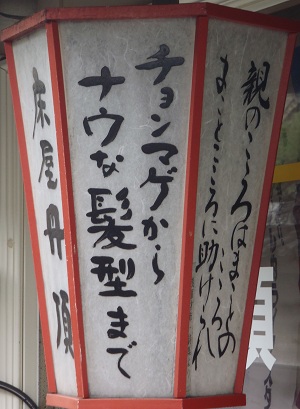 親のこころはまことの
まことこころに助けられ
チョンマゲから
ナウな髪型まで
床屋丹頂
頂